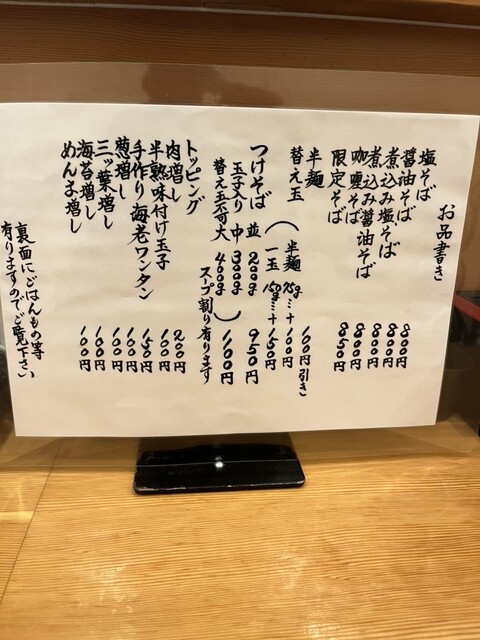 お品書き
塩そば
醤油そば 800円
煮込み塩そば 800円
煮込み醤油そば 800円
咖喱そば 800円
限定そば 850円
半麺 100円引き
替え玉（半麺 75g…+100円
一玉 150g…+150円
つけそば 並 200g 950円
玉子入り 中 300g
替え玉不可 大 400g） 1100円
スープ割り有ります
トッピング
肉増し 200円
半熟味付け玉子 100円
手作り海老ワンタン 150円
葱増し 100円
三ッ葉増し 100円
海苔増し 100円
めんま増し 100円
裏面にごはんもの等
有りますのでご覧下さい